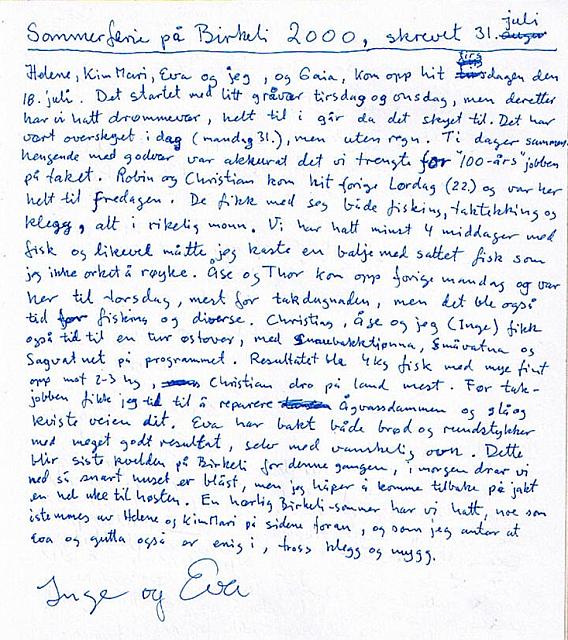 Sommerferie på Birkeli 2000, skrevet 31. juli
Helene, Kim Mari, Eva og jeg, og Gaia, kom opp hit tirsdagen den
18. juli. Det startet med litt gråvær tirsdag og onsdag, men deretter
har vi hatt drømmevær, helt til i går da det skyet til. Det har
vært overskyet i dag (mandag 31.), men uten regn. Ti dager sammen-
hengende med godvær var akkurat det vi trengte for "100-års" jobben
på taket. Robin og Christian kom hit forige Lørdag (22.) og var her
helt til fredagen. De fikk med seg både fisking, taktekking og
klegg, alt i rikelig monn. Vi har hatt minst 4 middager med
fisk og likevel måtte jeg kaste en balje med saltet fisk som
jeg ikke orket å røyke. Åse og Thor kom opp forige mandag og var
her til torsdag, mest for takdugnaden, men det ble også
tid for fisking og diverse. Christian, Åse og jeg (Inge) fikk
også tid til en tur østover, med Småvatna og
Sagvatnet på programmet. Resultatet ble 4kg fisk med mye fint
opp mot 2-3 hg, Christian dro på land mest. Før tak-
jobben fikk jeg tid til å reparere Ågvassdammen og slå og
kviste veien dit. Eva har bakt både brød og rundstykker
med meget godt resultat, selv med vanskelig ovn. Dette
blir siste kvelden på Birkeli for denne gangen, i morgen drar vi
ned så snart huset er blåst, men jeg håper å komme tilbake på jakt
en hel uke til høsten. En herlig Birkeli-sommer har vi hatt, noe som
istemmes av Helene og Kim Mari på sidene foran, og som jeg antar at
Eva og gutta også er enig i, tross klegg og mygg.
Inge og Eva